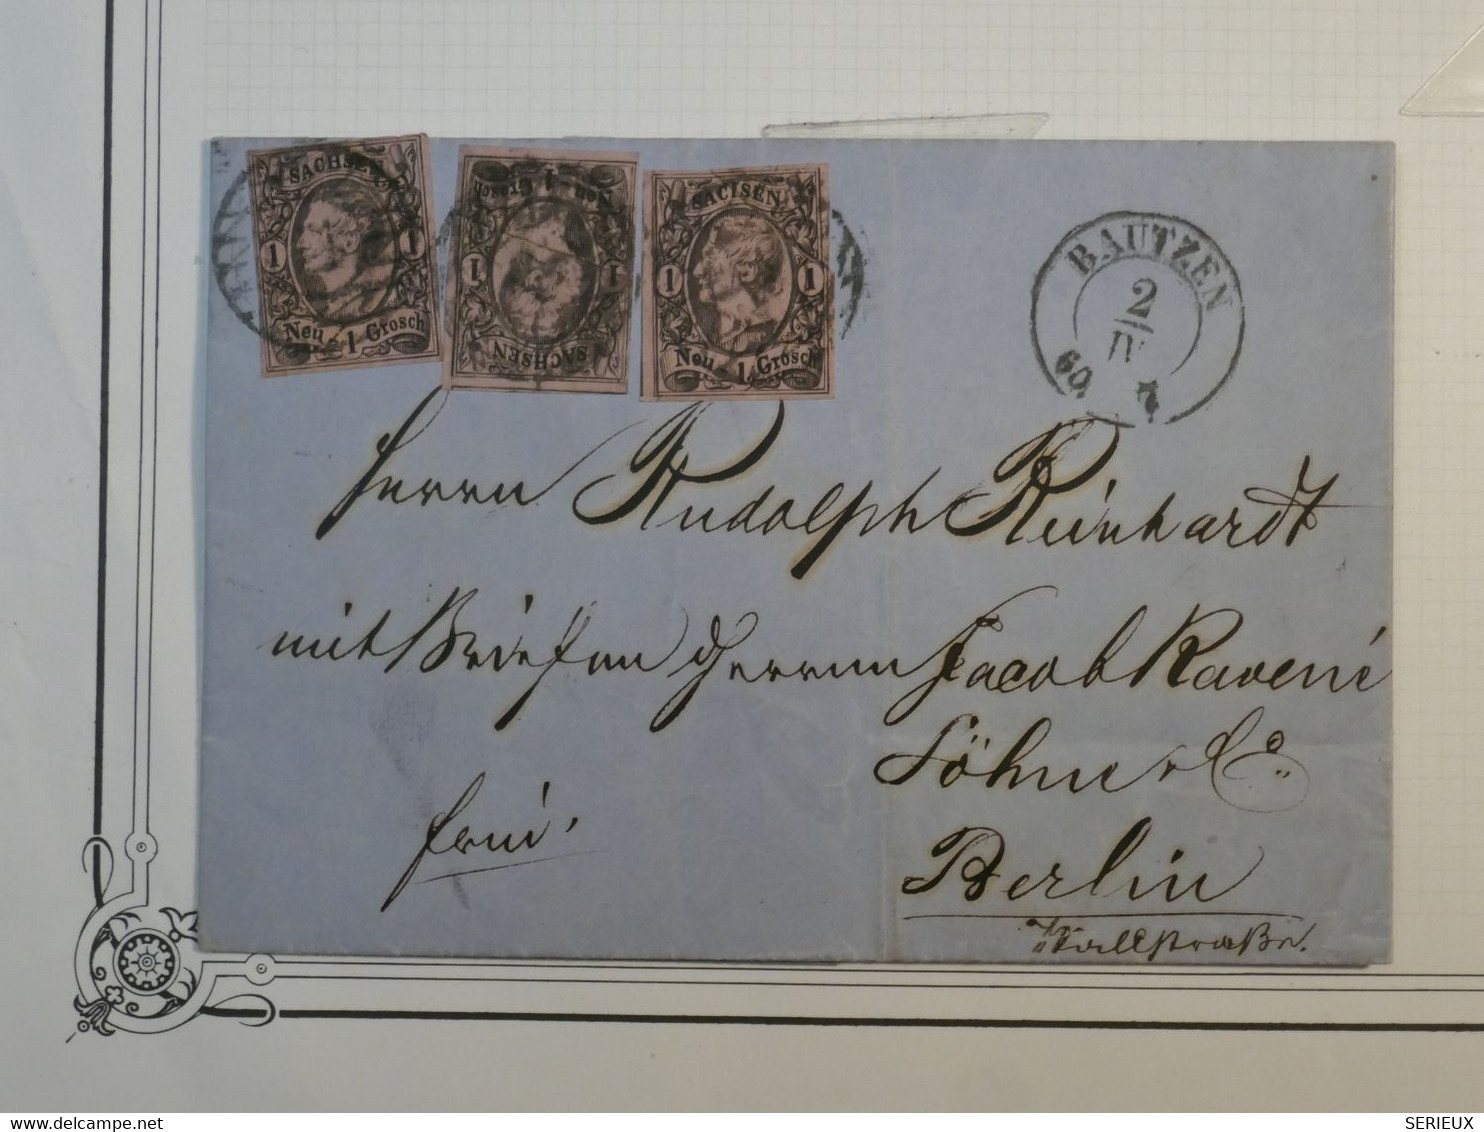 SACHSEN
1 1
Neu - 1 Grosch
SACHSEN
1 1
Neu - 1 Grosch
SACHSEN
1 1
Neu - 1 Grosch
BAUTZEN
2
IV
60.
Herrn Rudolph Reinhardt
mit Briefen Herren Jacob Ravené
Söhne & Co.
frei.
Berlin
Wallstraße.
SERIEUX